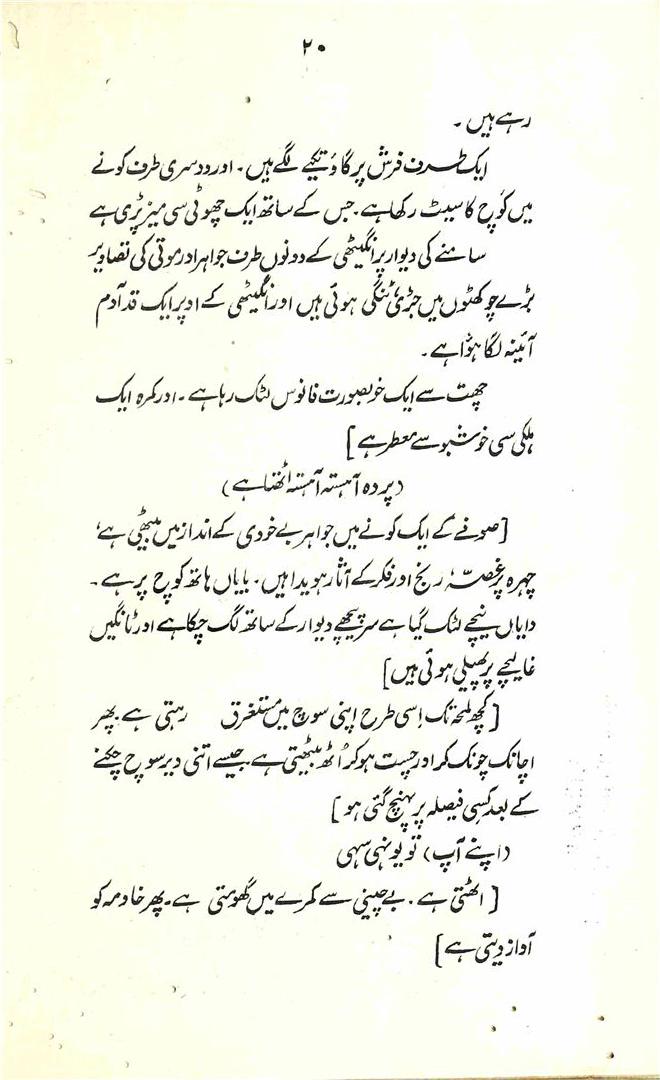 ۲۰
رہے ہیں ۔
ایک طرف فرش پر گاؤ تکیے لگے ہیں ۔ اور دوسری طرف کونے
میں کوچ کا سیٹ رکھا ہے۔ جس کے ساتھ ایک چھوٹی سی میز پڑی ہے
سامنے کی دیوار پر انگیٹھی کے دونوں طرف جواہر اور موتی کی تصاویر
بڑے چوکھٹوں میں جڑی ٹنگی ہوئی ہیں اور انگیٹھی کے اوپر ایک قد آدم
آئینہ لگا ہؤا ہے ۔
چھت سے ایک خوبصورت فانوس لٹک رہا ہے ۔ اور کمرہ ایک
ہلکی سی خوشبو سے معطر ہے ]
(پردہ آہستہ آہستہ اٹھتا ہے)
[صوفے کے ایک کونے میں جواہر بے خودی کے انداز میں بیٹھی ہے،
چہرہ پر غصّہ، رنج اور فکر کے آثار ہویدا ہیں۔ بایاں ہاتھ کوچ پر ہے ۔
دایاں نیچے لٹک گیا ہے سر پیچھے دیوار کے ساتھ لگ چکا ہے اور ٹانگیں
غالیچے پر پھیلی ہوئی ہیں]
[کچھ لمحہ تک اِسی طرح اپنی سوچ میں مستغرق رہتی ہے۔ پھر
اچانک چونک کر اور چست ہو کر اُٹھ بیٹھتی ہے۔ جیسے اتنی دیر سوچ چکنے
کے بعد کسی فیصلہ پر پہنچ گئی ہو ]
(اپنے آپ) تو یونہی سہی
[ اٹھتی ہے ۔ بے چینی سے کمرے میں گھومتی ہے۔ پھر خادمہ کو
آواز دیتی ہے]